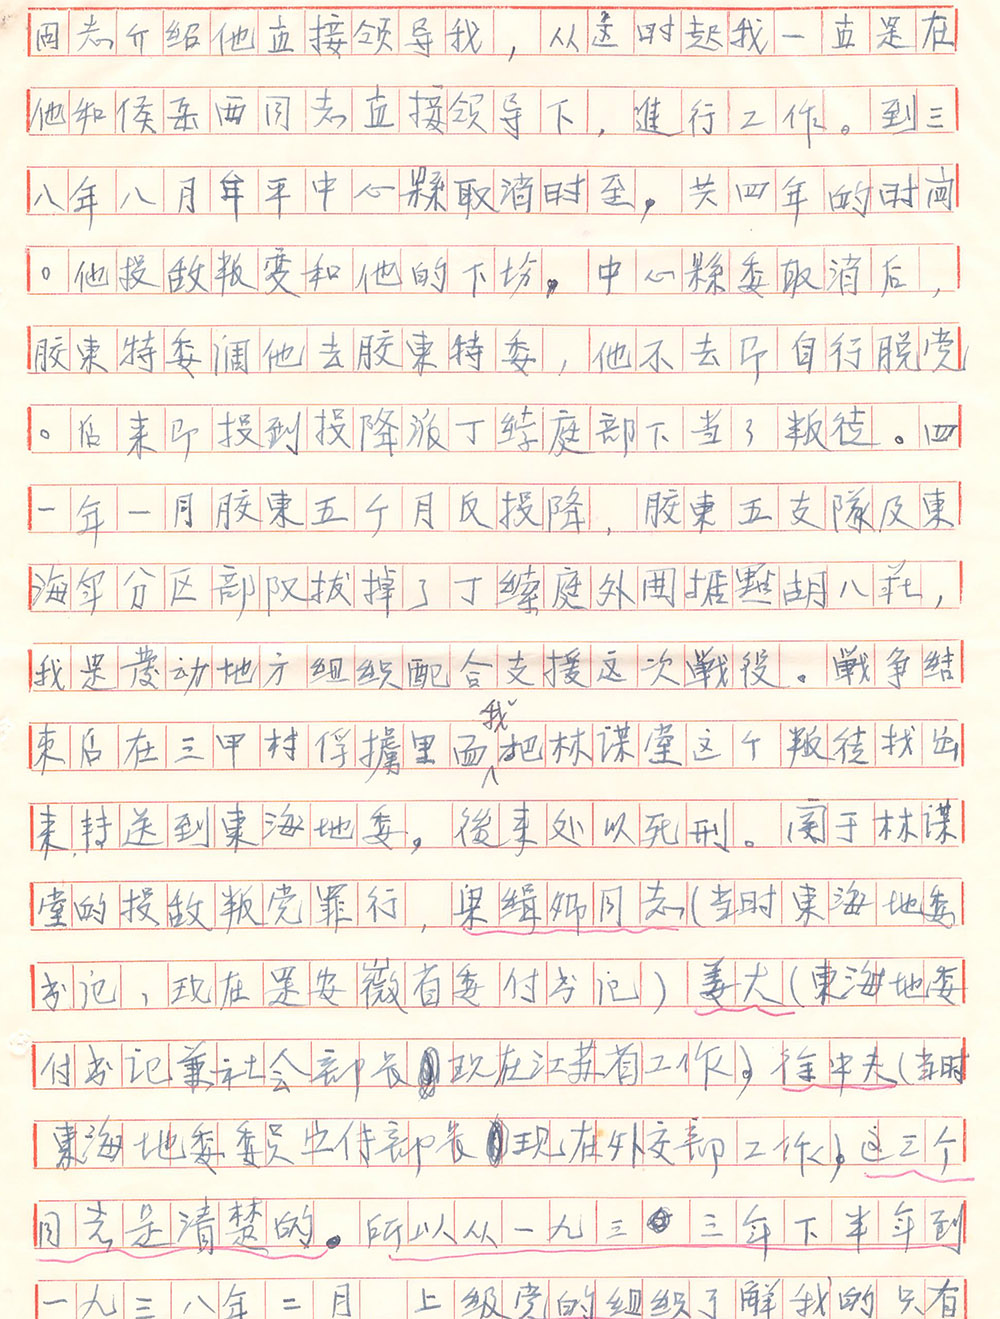 同志介绍他直接领导我，从这时起我一直是在
他和侯东西同志直接领导下，進行工作。到三
八年八月牟平中心縣取消时至，共四年的时间
。他投敌叛变和他的下场。中心縣委取消后，
胶東特委调他去胶東特委，他不去即自行脱党
。后来即投到投降派丁綍庭部下当了叛徒。四
一年一月胶東五个月反投降，胶東五支隊及東
海军分区部队拔掉了丁綍庭外围据點胡八莊，
我是發动地方组织配合支援这次戦役。戦争结
束后在三甲村俘擄里面我把林谋堂这个叛徒找出
来，持送到東海地委，後来处以死刑。関于林谋
堂的投敌叛党罪行，梁缉卿同志（当时東海地委
书记，现在是安徽省委付书记）姜大（東海地委
付书记兼社会部長现在江苏省工作）。徐中夫（当时
東海地委委员 付部長现在外交部工作）。这三个
同志是清楚的。所以从一九三三年下半年到
一九三八年二月 上级党的组织了解我的只有